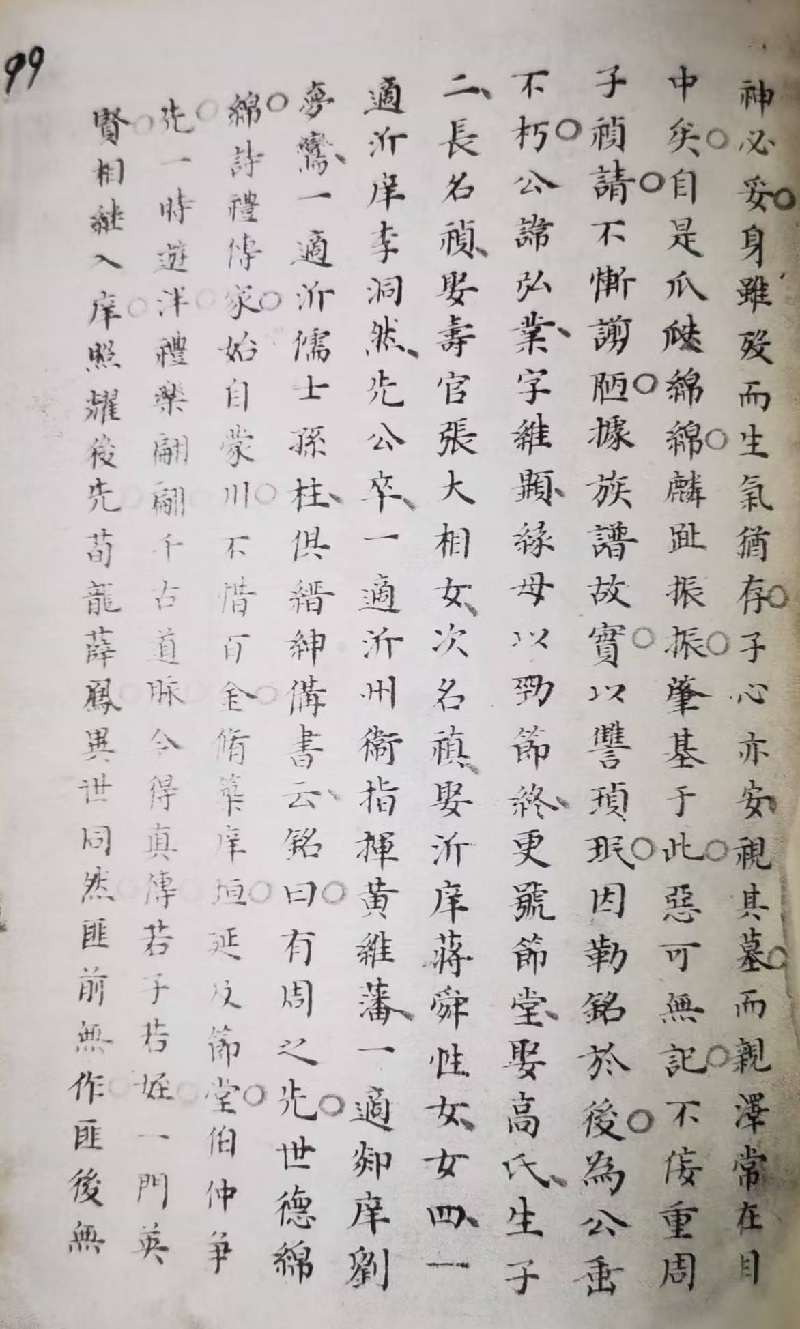 99
神必妥身雖歿而生氣猶存子心亦安視其墓而親澤常在目
中矣自是瓜瓞綿綿麟趾振振肇基于此惡可無記不佞重周
子禎請不慚謭陋據族譜故實以讐瑱珉因勒銘於後為公垂
不朽公諱弘業字維顯緣母以勁節終更號節堂娶高氏生子
二長名禎娶壽官張大相女次名禛娶沂庠蔣舜性女女四一
適沂庠李洞然先公卒一適沂州衞指揮黃維藩一適郯庠劉
夢鸞一適沂儒士孫柱俱縉紳備書云銘曰有周之先世德綿
綿詩禮傳家始自蒙川不惜百金脩葺庠垣延及節堂伯仲爭
先一時遊泮禮樂翩翩千古道脉今得真傳若子若姪一門英
賢相継入庠照耀後先荀龍薛鳳異世同然匪前無作匪後無